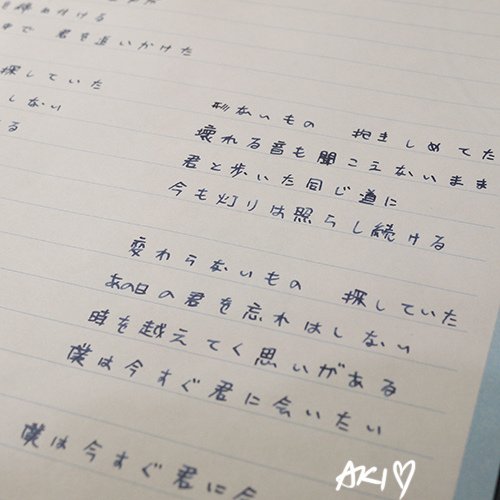 を締め付ける
中で 君を追いかけた
探していた
しない
る
形ないもの 抱きしめてた
壊れる音も聞こえないまま
君と歩いた同じ道に
今も灯りは照らし続ける
変わらないもの 探していた
あの日の君を忘れはしない
時を越えてく思いがある
僕は今すぐ君に会いたい
僕は今すぐ君に
AKI♡